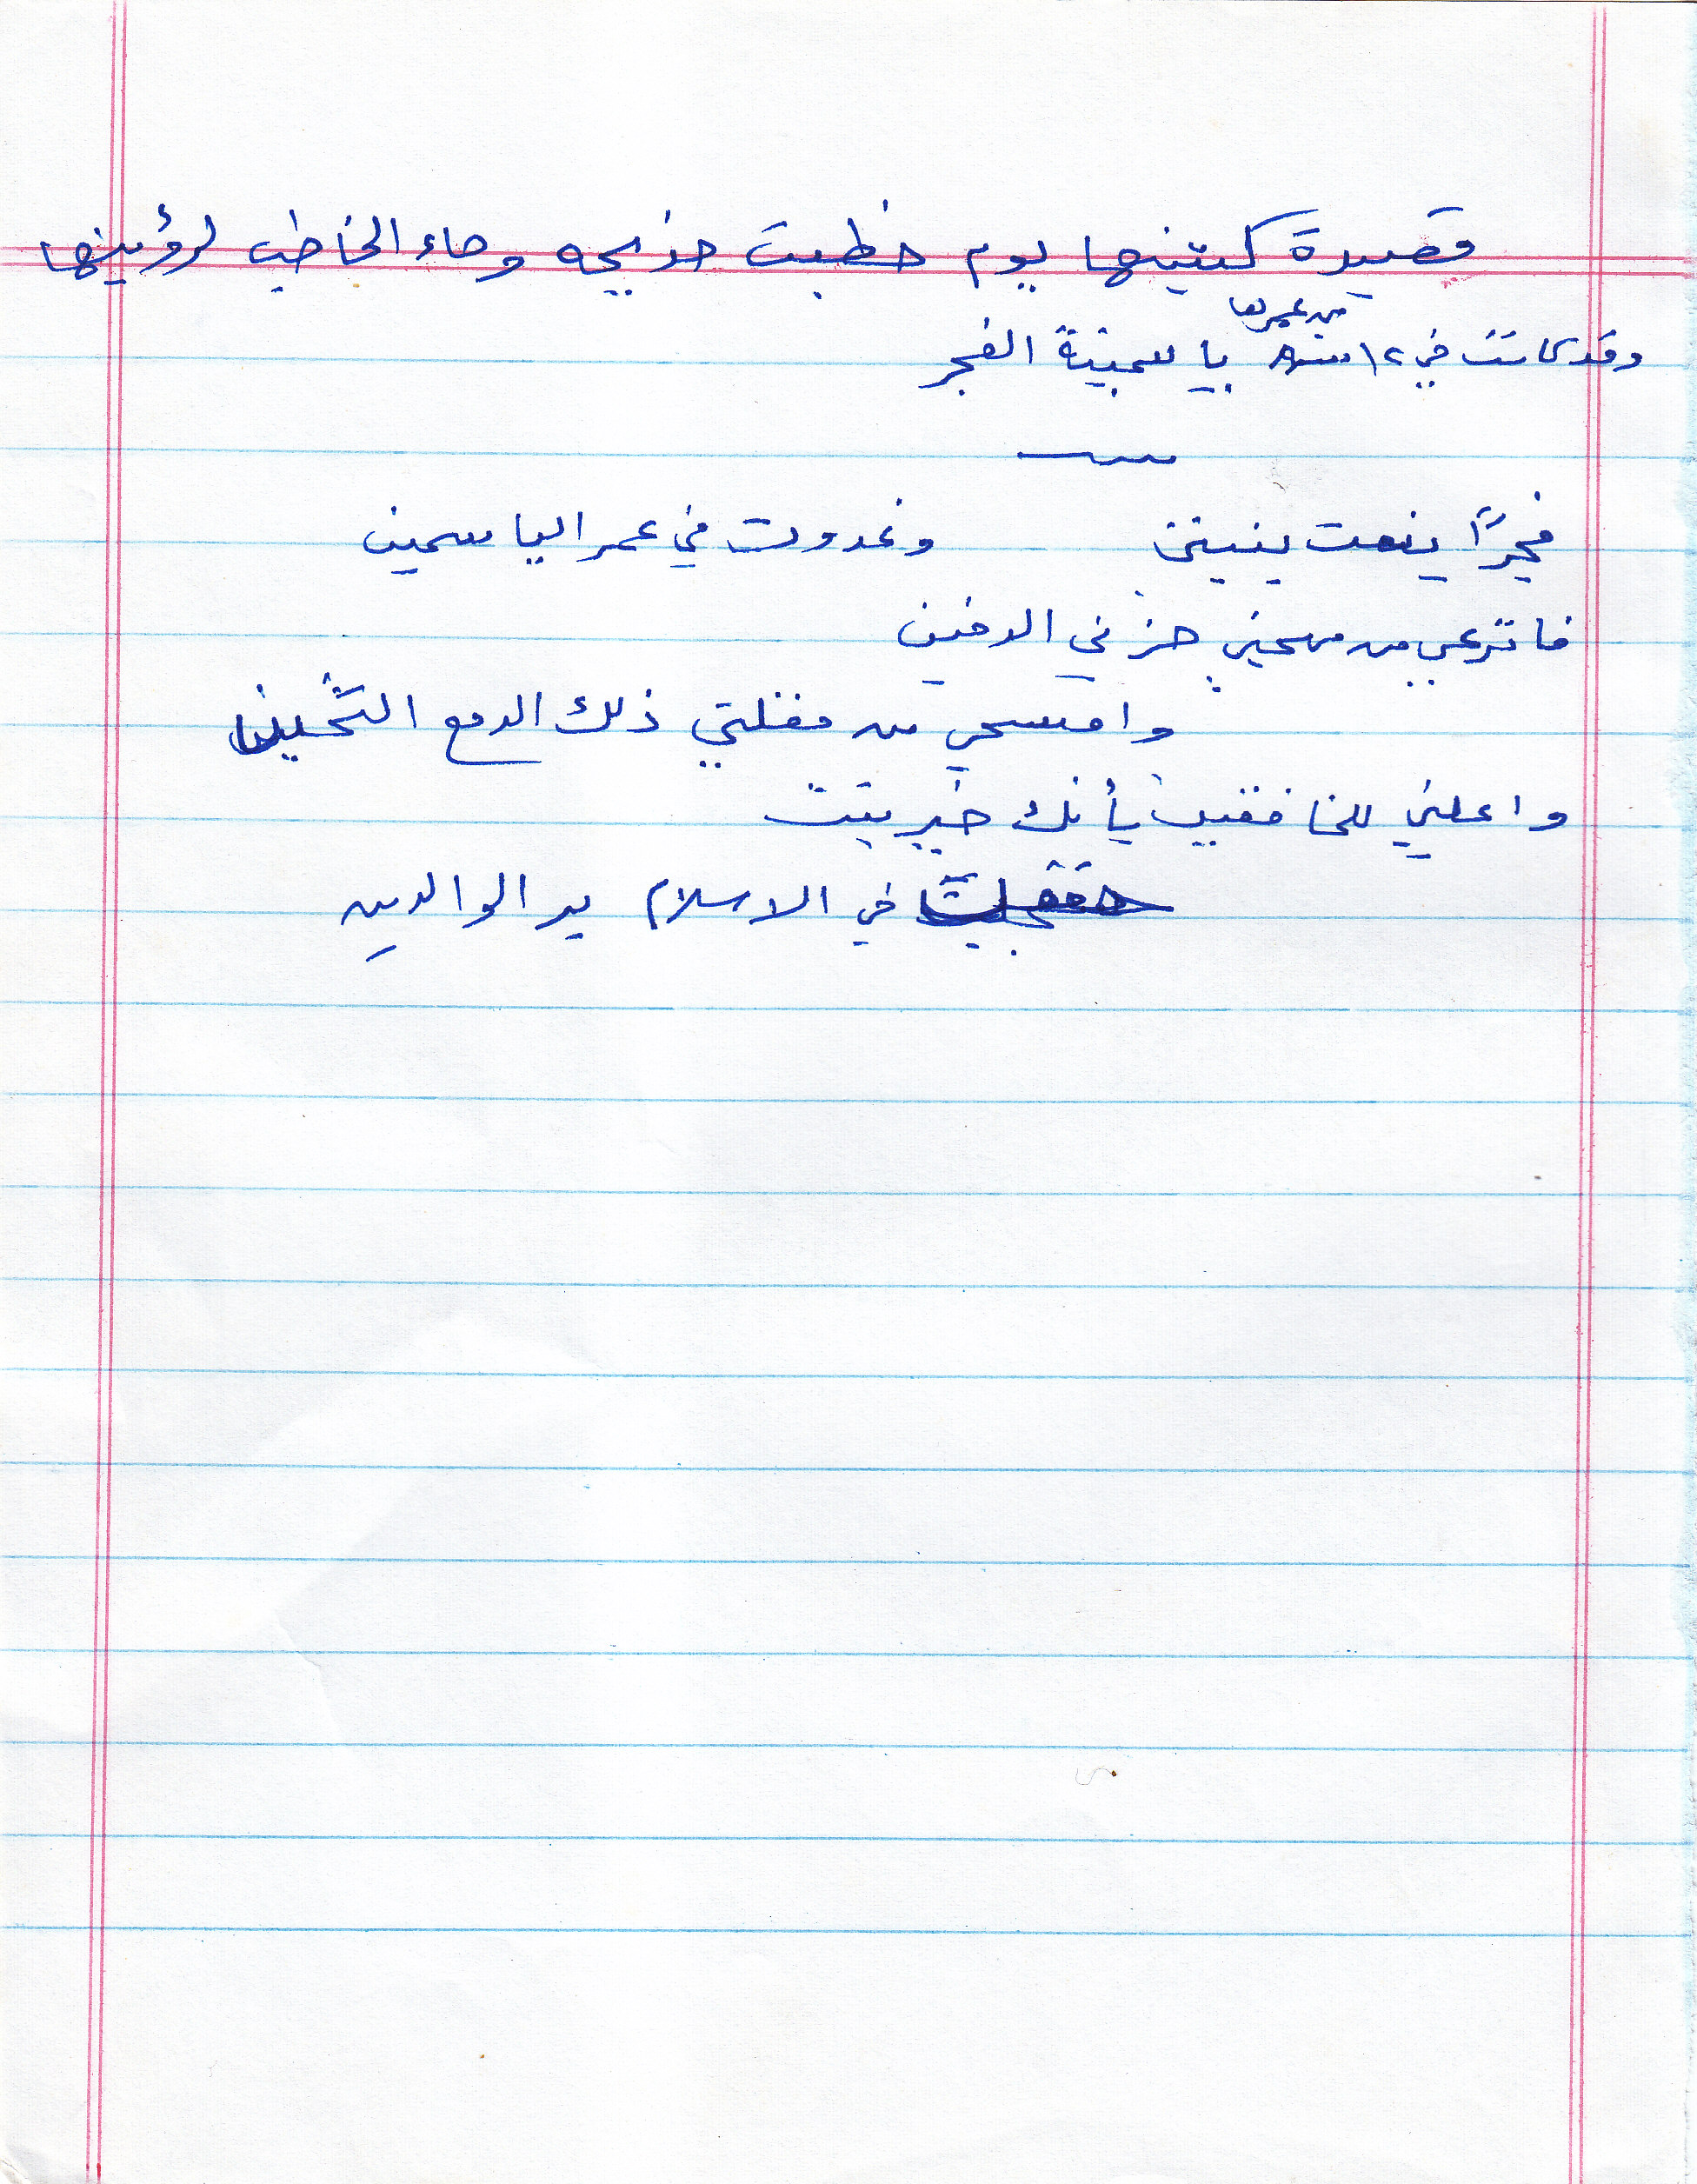 قصيدة كتبتها يوم خطبت خديجه وجاء الخاطب لرؤيتها
وقد كانت في ١٢ سنة من عمرها ياسمينة الفجر
فجرًا ينعت بنيتي وغدوت في عمر الياسمين
فانزعي من مهجتي حزني الدفين
وامسحي من مقلتي ذلك الدمع الثخين
واعلني للخافقين بأنك خير بنت
حققت في الاسلام بر الوالدين